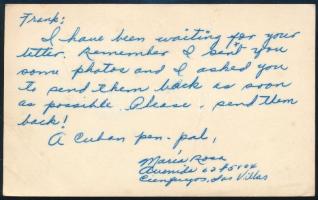 Frank:
I have been waiting for your
letter. Remember I sent you
some photos and I asked you
to send them back as soon
as possible. Please, send them
back!
A Cuban pen-pal,
María Rosa
Avenida 62 #5424
Cienfuegos, Las Villas